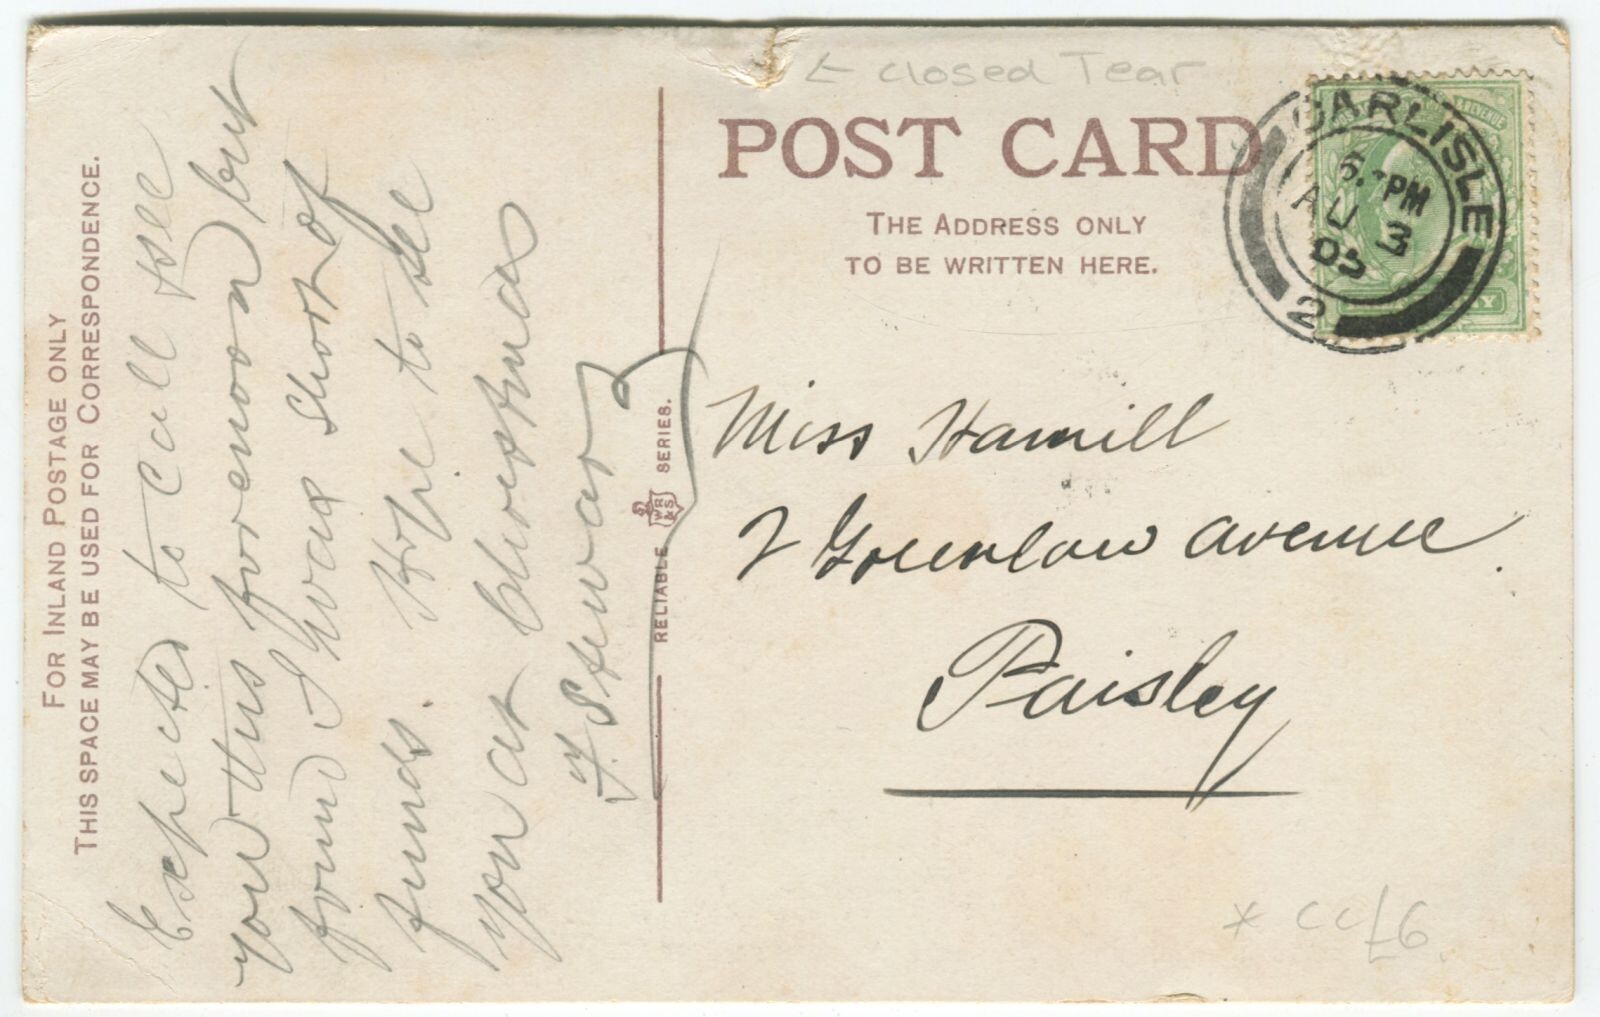 FOR INLAND POSTAGE ONLY
THIS SPACE MAY BE USED FOR CORRESPONDENCE.
Expected to call &see
you this forenoon but
found I was short of
funds. Hope to see
you at Christmas
J. Stewart
RELIABLE WR&S SERIES.
← closed Tear
POST CARD
THE ADDRESS ONLY
TO BE WRITTEN HERE.
CARLISLE
6.-PM
AU 3
05
2
Miss Hamill
2 Greenlaw avenue.
Paisley